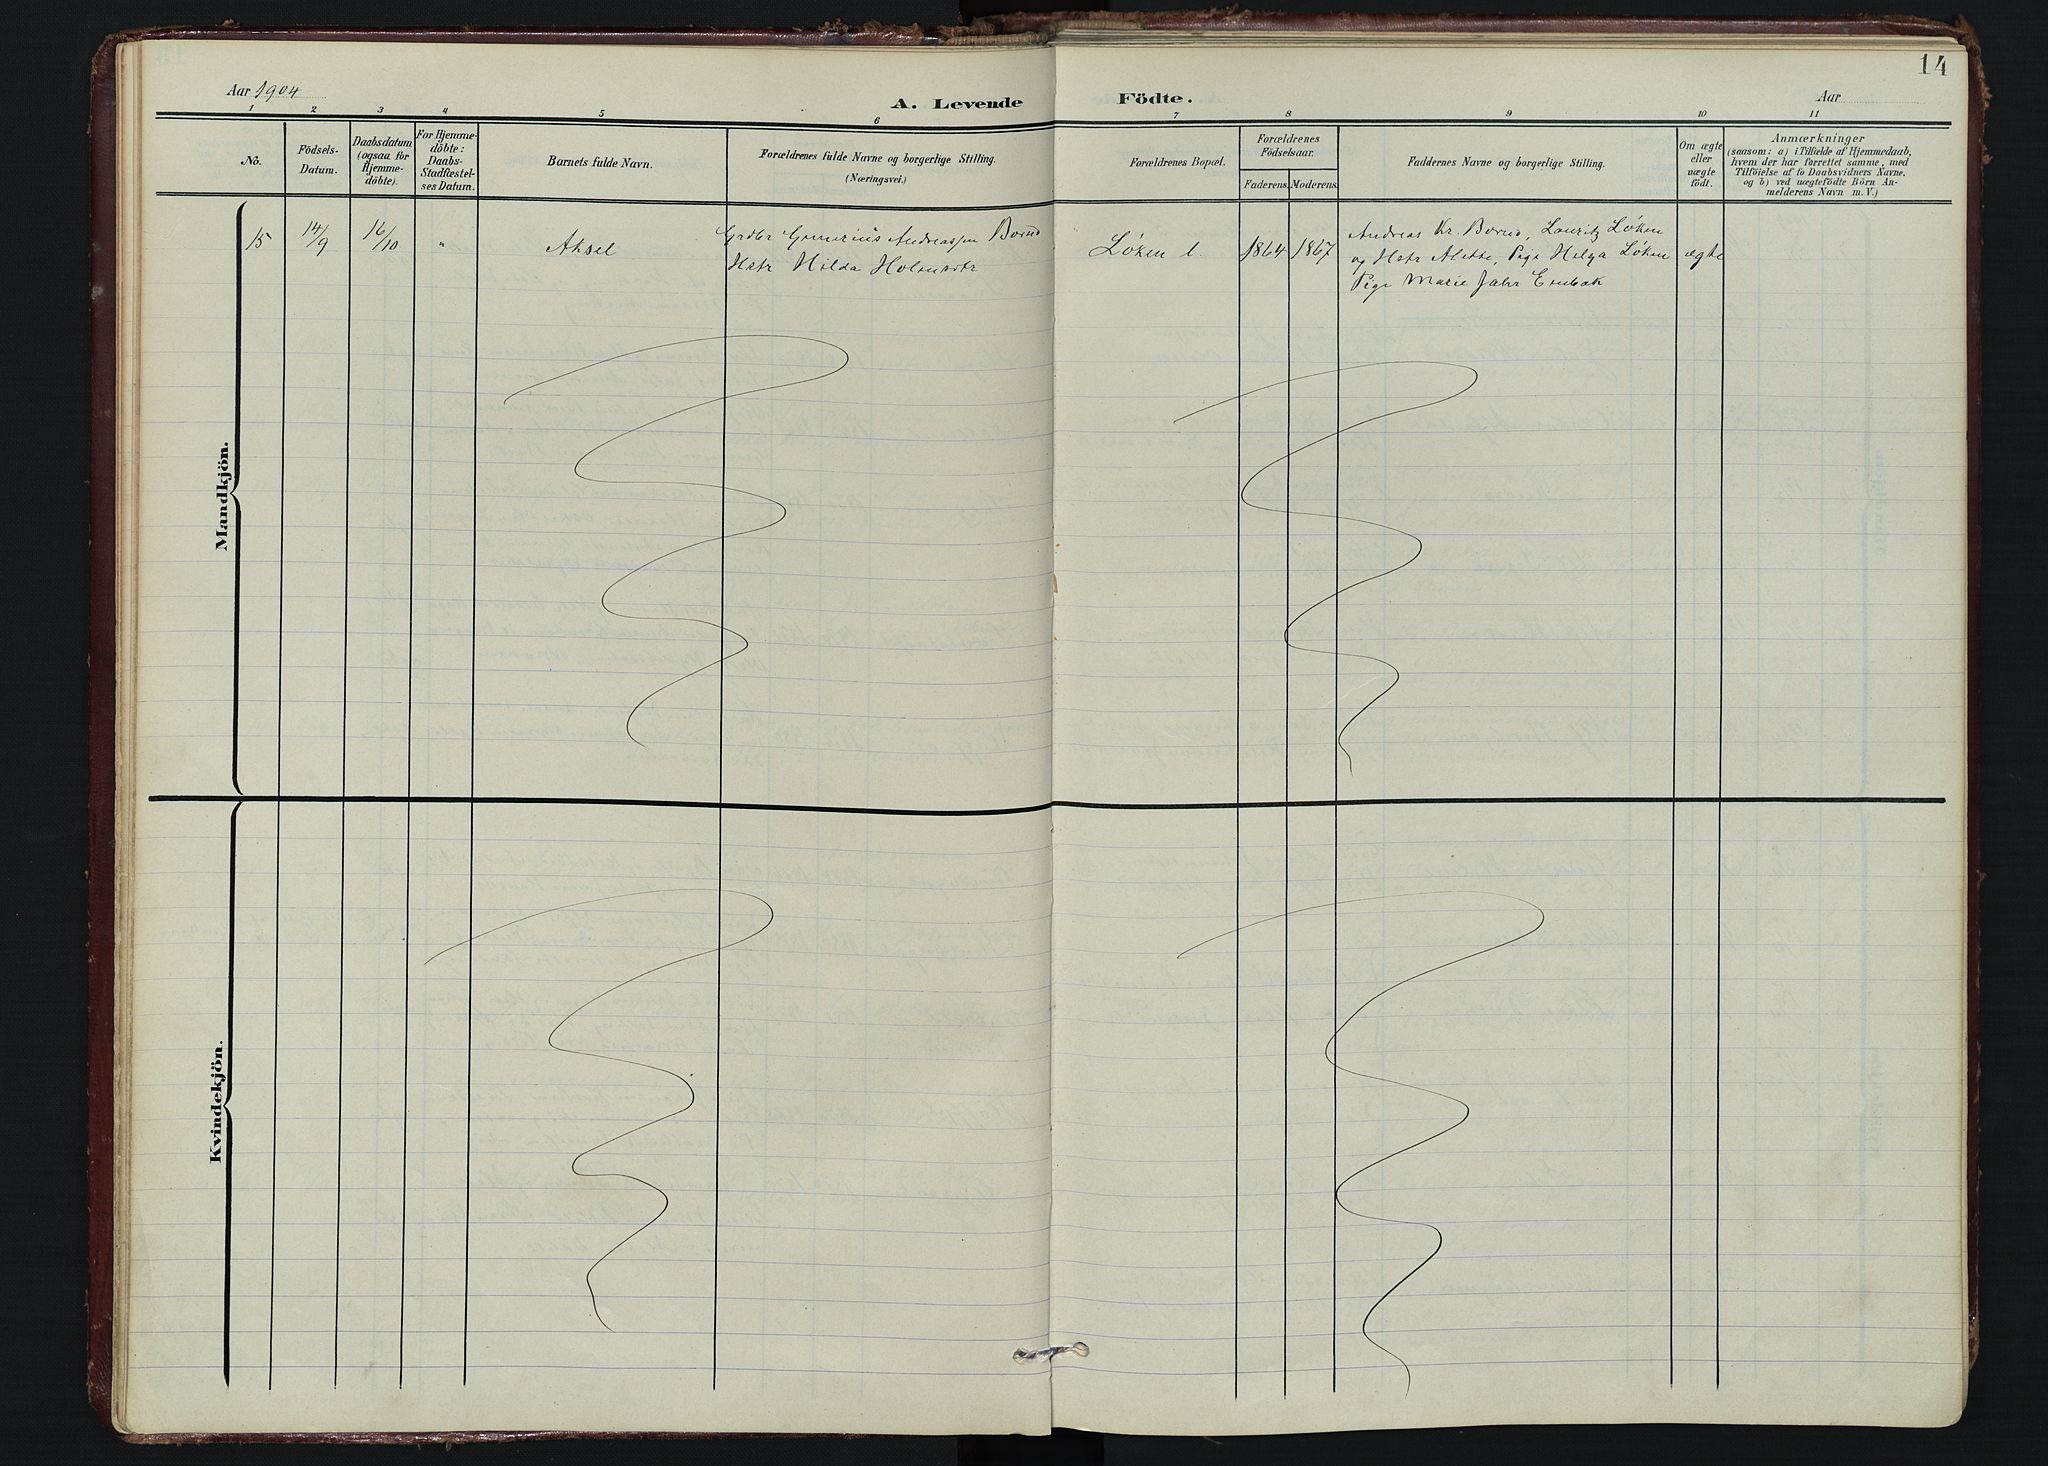 14
Aar 1904
A. Levende Födte.
Aar
1 2 3 4 5 6 7 8 9 10 11
No.
Födsels-
Datum.
Daabsdatum
(ogsaa for
Hjemme-
döbte).
For Hjemme-
döbte:
Daabs-
Stadfæstel-
ses Datum.
Barnets fulde Navn.
Forældrenes fulde Navne og borgerlige Stilling.
(Næringsvei.)
Forældrenes Bopæl.
Forældrenes
Födselsaar.
Faderens. Moderens.
Faddernes Navne og borgerlige Stilling.
Om ægte
eller
uægte
födt.
Anmærkninger
(saasom: a) i Tilfælde af Hjemmedaab,
hvem der har forrettet samme, med
Tilföielse af to Daabsvidners Navne,
og b) ved uægtefödte Börn An-
melderens Navn m. V.)
Mandkjön.
15 14/9 16/10 " Aksel
Gunerius Andreassen Børud
Hstr Hilda
Løken l. 1864 1867
Andreas Kr. Børud, Lauritz Løken
og Hstr Alette, Pige Helga Løken
Pige Marie Jahr Enebak
ægte
Kvindekjön.